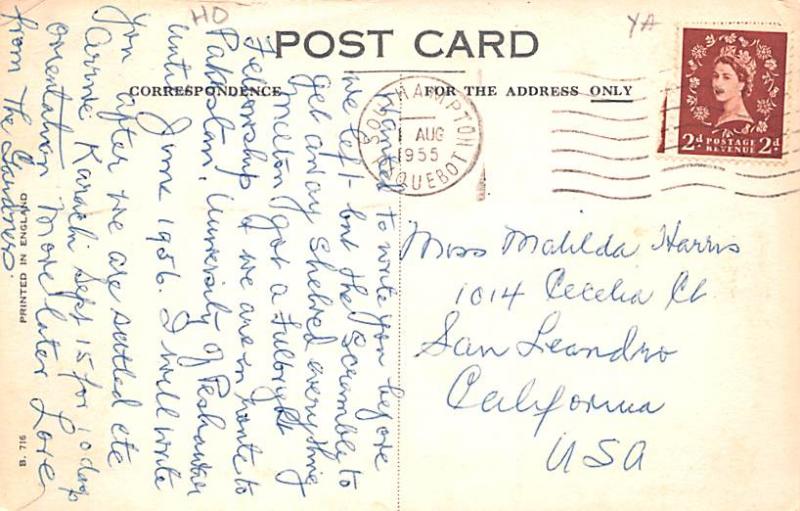 HD
YA
POST CARD
CORRESPONDENCE
FOR THE ADDRESS ONLY
SOUTHAMPTON
AUG
1955
PAQUEBOT
2d POSTAGE 2d
REVENUE
Wanted to write you before
we left but the scramble to
get away shelved everything
Milton got a Fulbright
Fellowship & we are en route to
Pakistan, University of Peshawar
until June 1956. I will write
you after we are settled etc
Arrive Karachi Sept 15 for 10 days
orientation More later Love,
from The Gardners.
Miss Matilda Harris
1014 Cecelia Ct.
San Leandro
California
USA
PRINTED IN ENGLAND
B. 716